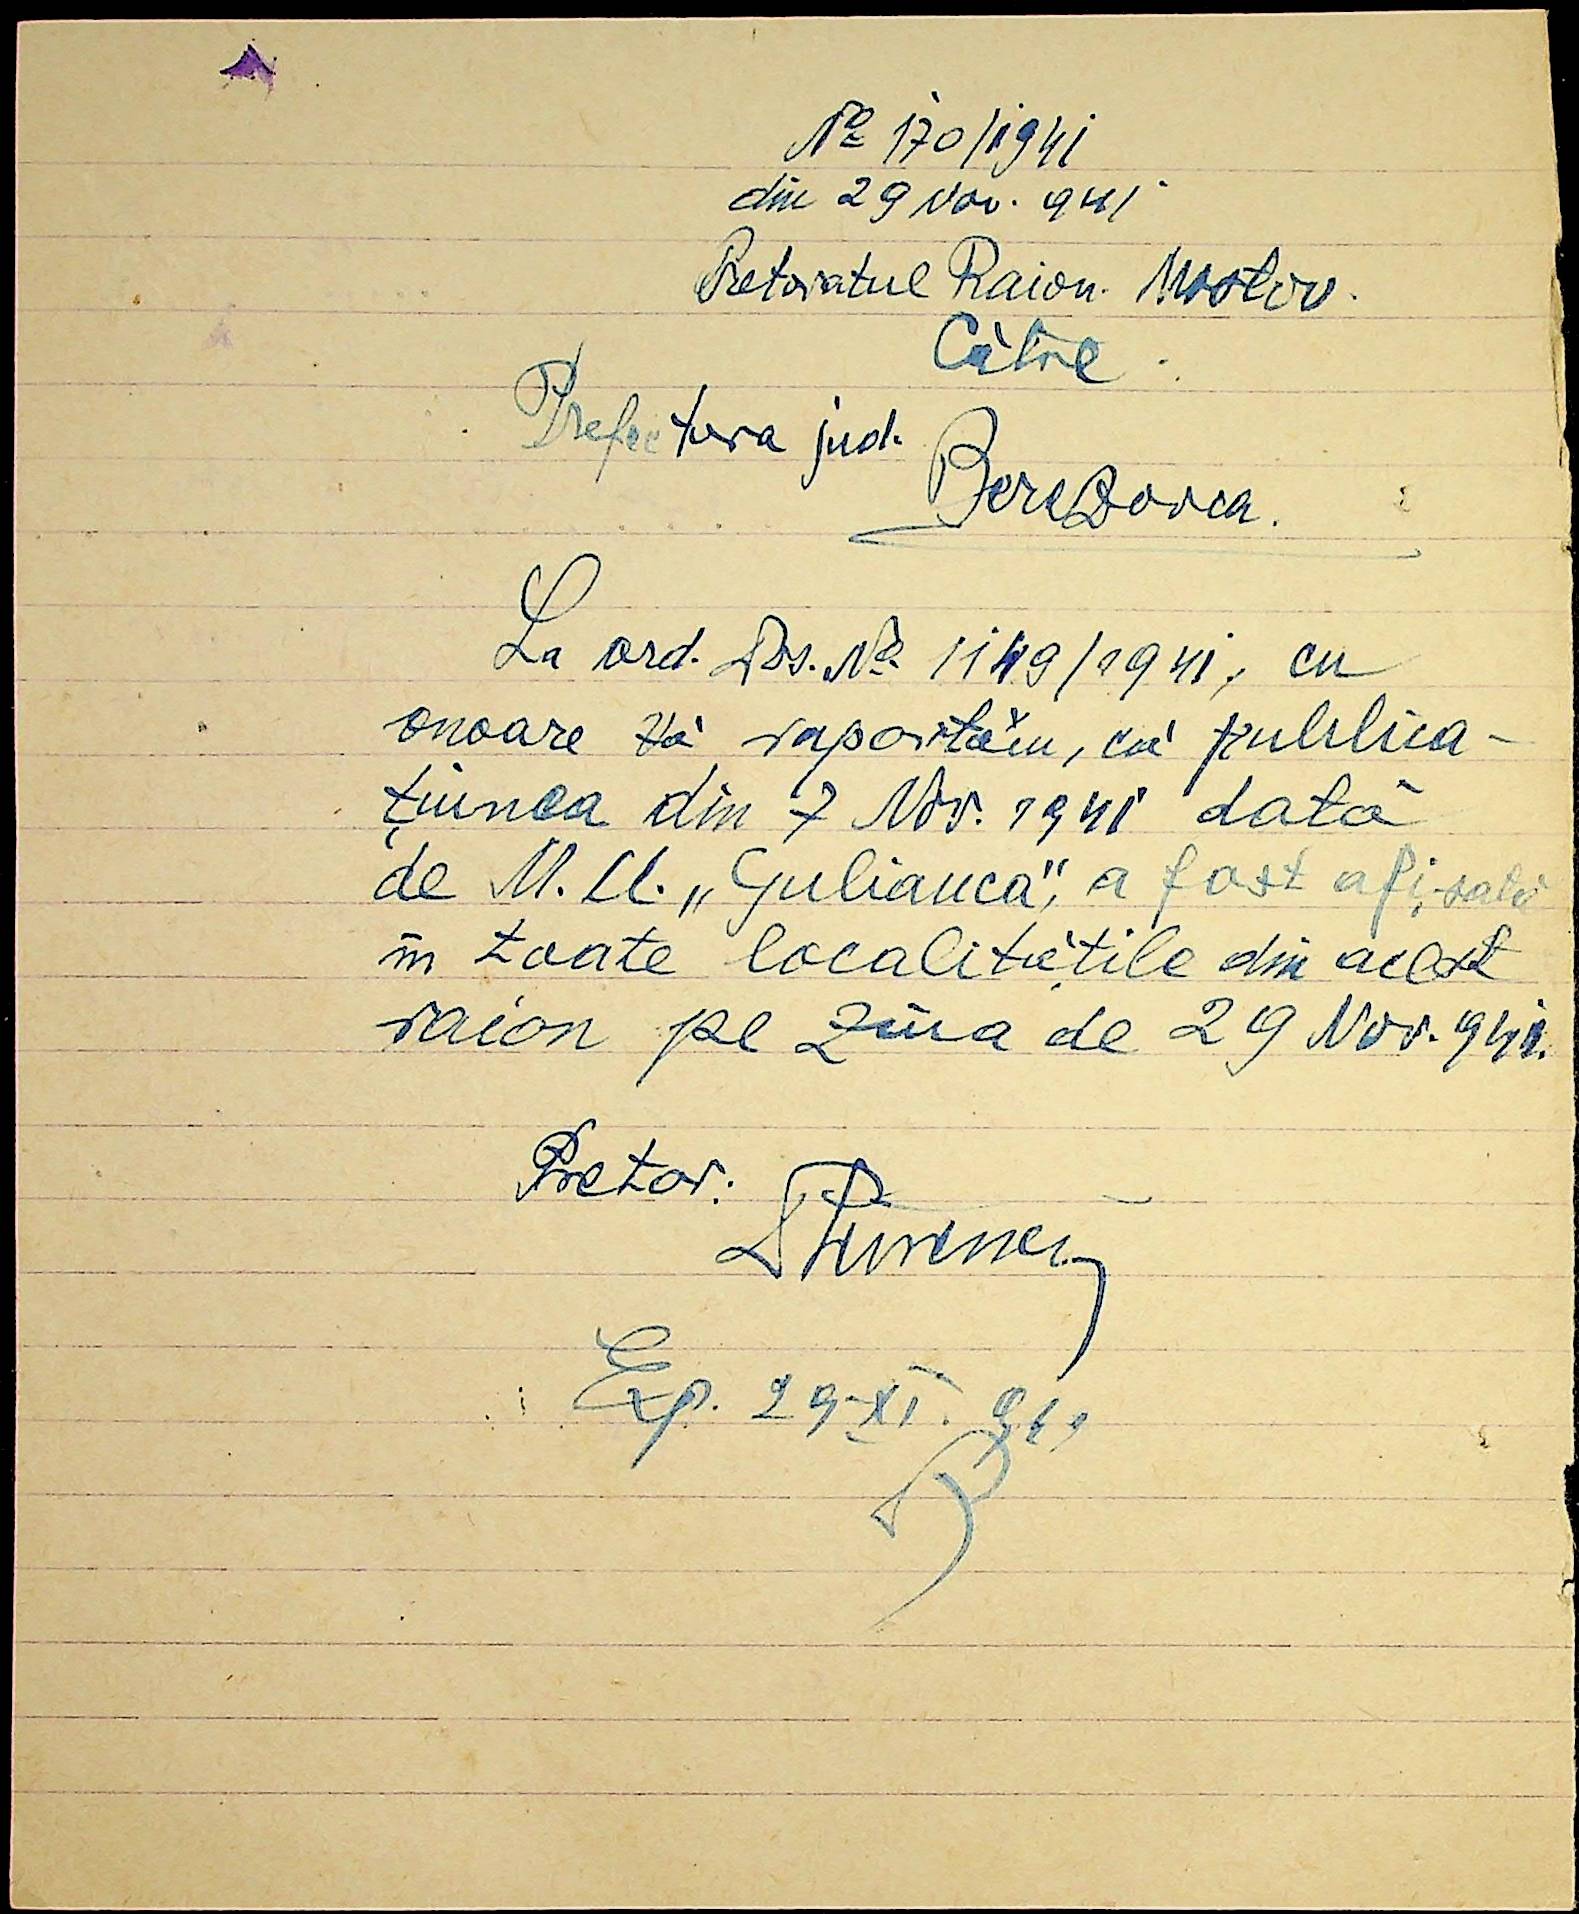 No 170/1941
din 29 Nov. 941
Pretoratul Raion. Mostov.
Către
Prefectura jud.
Berezovca.
La ord. Dvs. No 1149/1941, cu
onoare vă raportăm, că publica-
țiunea din 7 Nov. 1941 dată
de M. U. „Gulianca", a fost afișată
în toate localitățile din acest
raion pe ziua de 29 Nov. 941.
Pretor:
Exp. 29-XI. 941